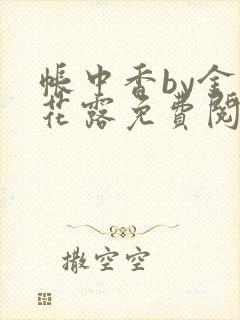 帐中香by金
花露免費閱
撒空空